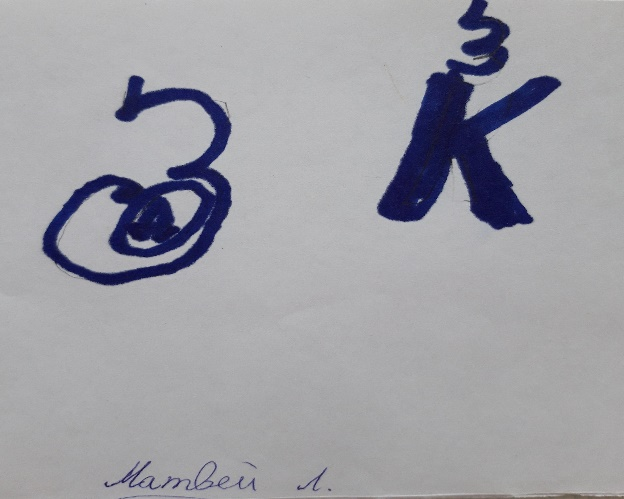 З К
З
Матвей Л.